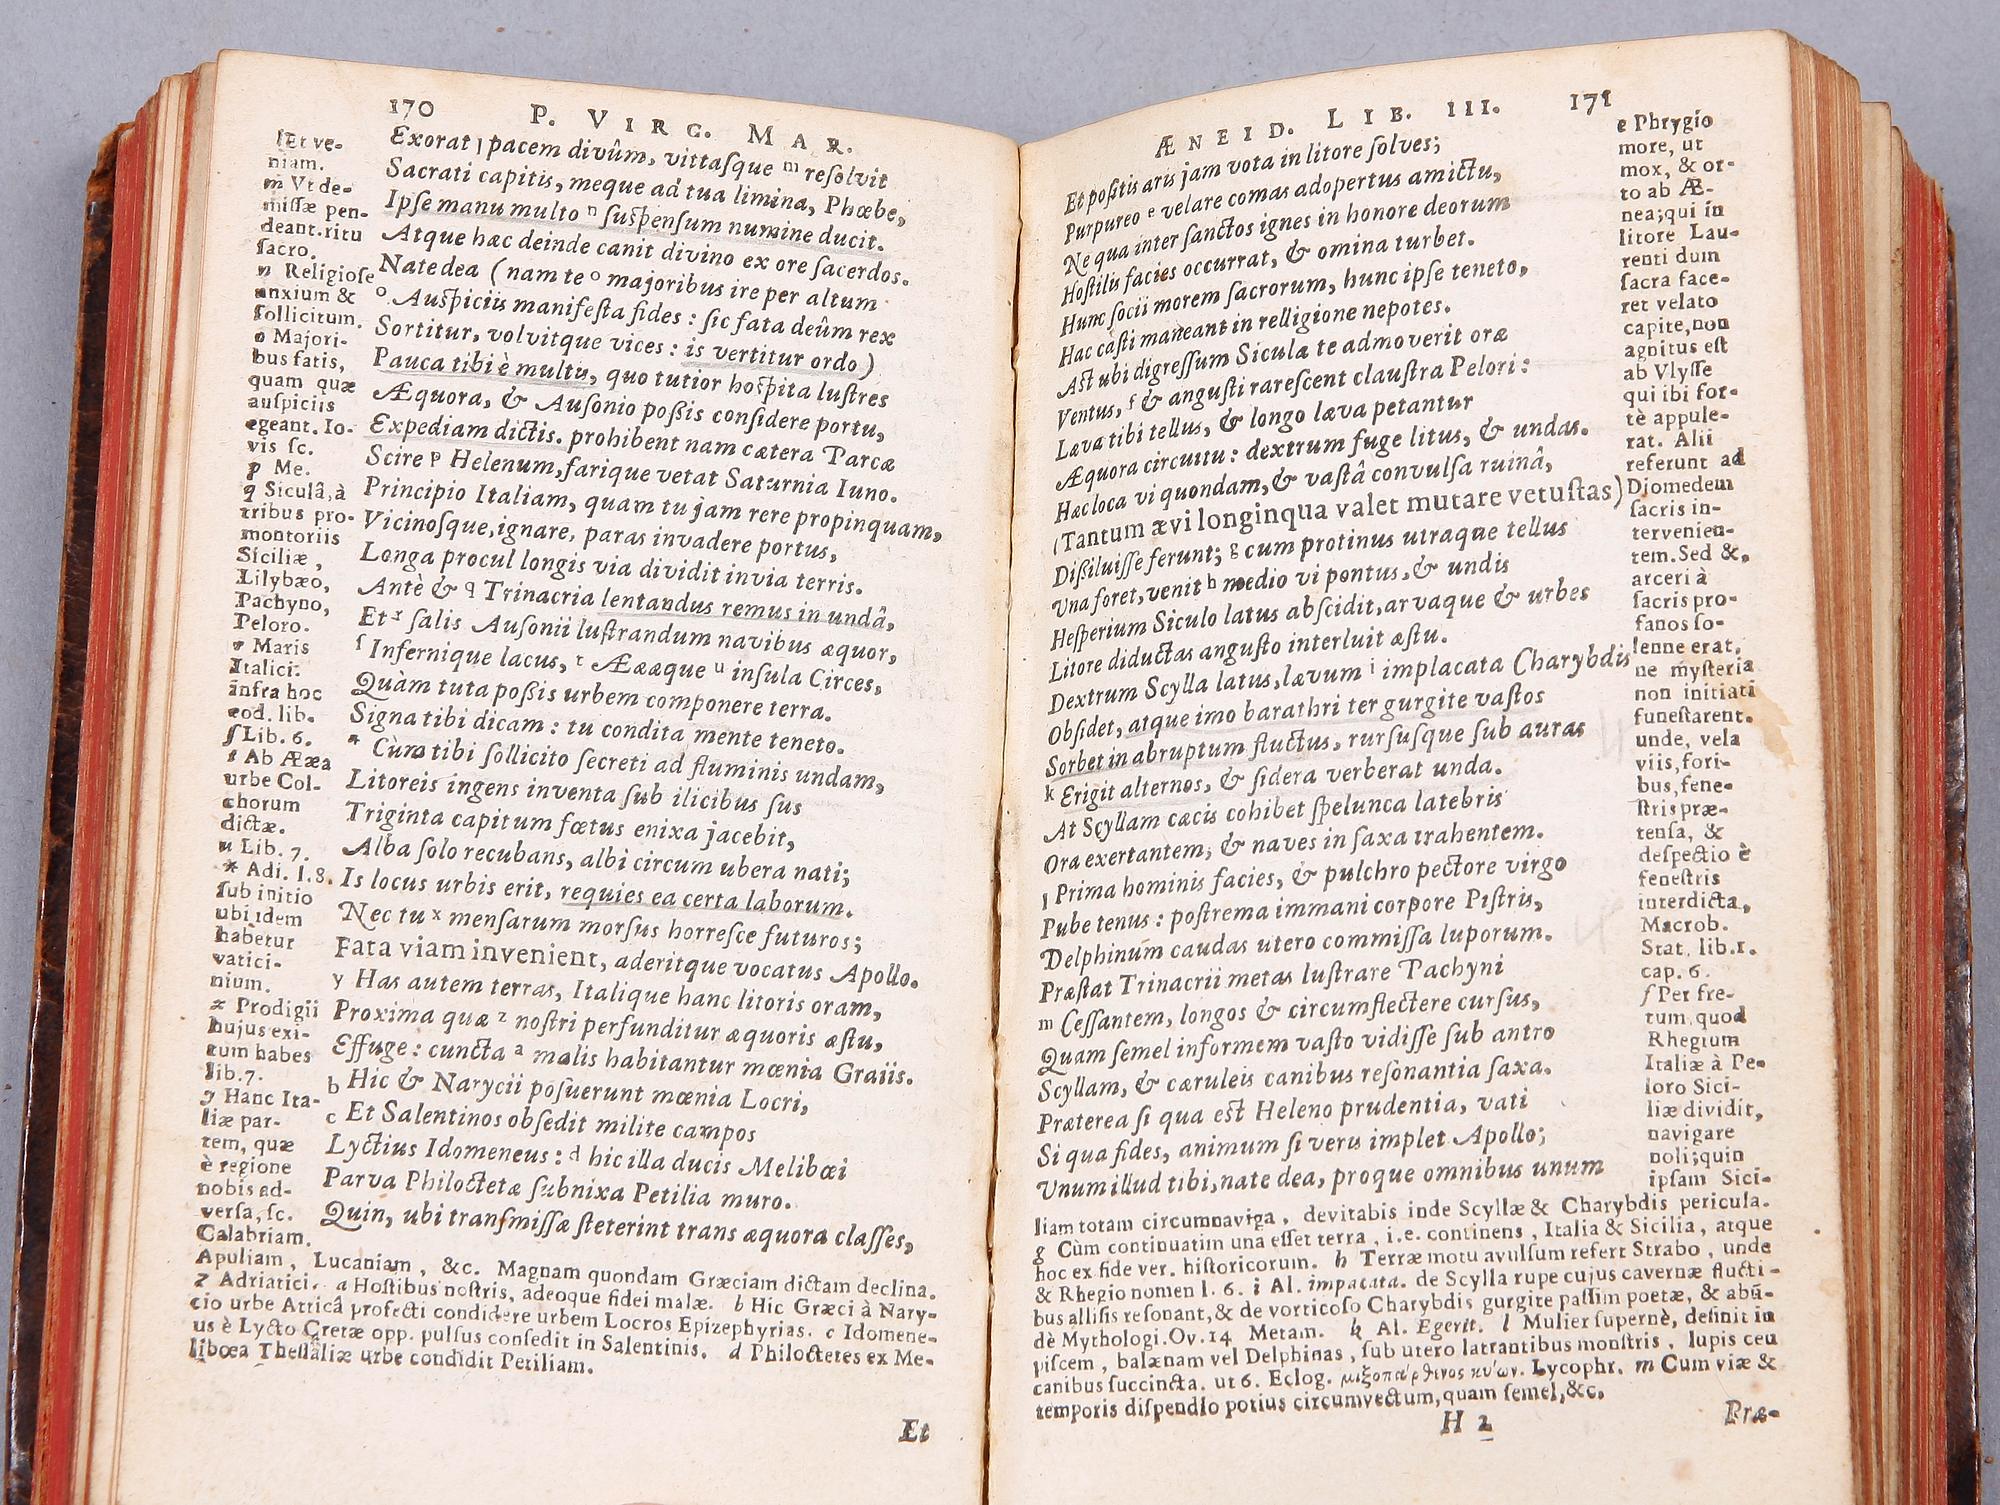 170 P. VIRG. MAR.
Exorat l pacem divûm, vittasque m resolvit
Sacrati capitis, meque ad tua limina, Phœbe,
Ipse manu multo n suspensum numine ducit.
Atque hæc deinde canit divino ex ore sacerdos.
Nate dea (nam te o majoribus ire per altum
o Auspiciis manifesta fides : sic fata deûm rex
Sortitur, volvitque vices : is vertitur ordo)
Pauca tibi è multis, quo tutior hospita lustres
Æquora, & Ausonio possis considere portu,
Expediam dictis. prohibent nam cætera Parcæ
Scire p Helenum, farique vetat Saturnia Iuno.
Principio Italiam, quam tu jam rere propinquam,
Vicinosque, ignare, paras invadere portus,
Longa procul longis via dividit invia terris.
Antè & q Trinacria lentandus remus in undâ,
Et r salis Ausonii lustrandum navibus æquor,
ſ Infernique lacus, t Æææque u insula Circes,
Quàm tuta possis urbem componere terra.
Signa tibi dicam : tu condita mente teneto.
* Cùm tibi sollicito secreti ad fluminis undam,
Litoreis ingens inventa sub ilicibus sus
Triginta capitum fœtus enixa jacebit,
Alba solo recubans, albi circum ubera nati;
Is locus urbis erit, requies ea certa laborum.
Nec tu x mensarum morsus horresce futuros;
Fata viam invenient, aderitque vocatus Apollo.
y Has autem terras, Italique hanc litoris oram,
Proxima quæ z nostri perfunditur æquoris æstu,
Effuge : cuncta a malis habitantur mœnia Graiis.
b Hic & Narycii posuerunt mœnia Locri,
c Et Salentinos obsedit milite campos
Lyctius Idomeneus : d hic illa ducis Melibœi
Parva Philoctetæ subnixa Petilia muro.
Quin, ubi transmissæ steterint trans æquora classes,
l Et ve-
niam.
m Vt de-
missæ pen-
deant. ritu
sacro.
n Religiose
anxium &
sollicitum.
o Majori-
bus fatis,
quam quæ
auspiciis
egeant. Io-
vis sc.
p Me.
q Siculâ, à
tribus pro-
montoriis
Siciliæ,
Lilybæo,
Pachyno,
Peloro.
r Maris
Italici.
infra hoc
eod. lib.
ſ Lib. 6.
t Ab Ææa
urbe Col-
chorum
dictæ.
u Lib. 7.
* Adi. l. 8.
sub initio
ubi idem
habetur
vatici-
nium.
x Prodigii
hujus exi-
tum habes
lib. 7.
y Hanc Ita-
liæ par-
tem, quæ
è regione
nobis ad-
versa, sc.
Calabriam.
Apuliam, Lucaniam, &c. Magnam quondam Græciam dictam declina.
z Adriatici. a Hostibus nostris, adeoque fidei malæ. b Hic Græci à Nary-
cio urbe Atticâ profecti condidere urbem Locros Epizephyrias. c Idomene-
us è Lycto Cretæ opp. pulsus consedit in Salentinis. d Philoctetes ex Me-
libœa Thessaliæ urbe condidit Petiliam.
Et
ÆNEID. LIB. III. 171
Et positis aris jam vota in litore solves;
Purpureo e velare comas adopertus amictu,
Ne qua inter sanctos ignes in honore deorum
Hostilis facies occurrat, & omina turbet.
Hunc socii morem sacrorum, hunc ipse teneto,
Hac casti maneant in relligione nepotes.
Ast ubi digressum Sicula te admoverit oræ
Ventus, f & angusti rarescent claustra Pelori :
Læva tibi tellus, & longo læva petantur
Æquora circuitu : dextrum fuge litus, & undas.
Hæc loca vi quondam, & vastâ convulsa ruinâ,
(Tantum ævi longinqua valet mutare vetustas)
Dissiluisse ferunt; g cum protinus utraque tellus
Una foret, venit h medio vi pontus, & undis
Hesperium Siculo latus abscidit, arvaque & urbes
Litore diductas angusto interluit æstu.
Dextrum Scylla latus, lævum i implacata Charybdis
Obsidet, atque imo barathri ter gurgite vastos
Sorbet in abruptum fluctus, rursusque sub auras
k Erigit alternos, & sidera verberat unda.
At Scyllam cæcis cohibet spelunca latebris
Ora exertantem, & naves in saxa trahentem.
l Prima hominis facies, & pulchro pectore virgo
Pube tenus : postrema immani corpore Pistris,
Delphinum caudas utero commissa luporum.
Præstat Trinacrii metas lustrare Pachyni
m Cessantem, longos & circumflectere cursus,
Quam semel informem vasto vidisse sub antro
Scyllam, & cæruleis canibus resonantia saxa.
Præterea si qua est Heleno prudentia, vati
Si qua fides, animum si veris implet Apollo;
Unum illud tibi, nate dea, proque omnibus unum
e Phrygio
more, ut
mox, & or-
to ab Æ-
nea; qui in
litore Lau-
renti dum
sacra face-
ret velato
capite, non
agnitus est
ab Vlysse
qui ibi for-
tè appule-
rat. Alii
referunt ad
Diomedem
sacris in-
tervenien-
tem. Sed &,
arceri à
sacris pro-
fanos so-
lenne erat,
ne mysteria
non initiati
funestarent.
unde, vela
viis, fori-
bus, fene-
stris præ-
tensa, &
despectio è
fenestris
interdicta,
Macrob.
Stat. lib. 1.
cap. 6.
f Per fre-
tum, quod
Rhegium
Italiæ à Pe-
loro Sici-
liæ dividit,
navigare
noli; quin
ipsam Sici-
liam totam circumnaviga, devitabis inde Scyllæ & Charybdis pericula.
g Cùm continuatim una esset terra, i.e. continens, Italia & Sicilia, atque
hoc ex fide ver. historicorum. h Terræ motu avulsum refert Strabo, unde
& Rhegio nomen l. 6. i Al. impacata. de Scylla rupe cujus cavernæ flucti-
bus allisis resonant, & de vorticoso Charybdis gurgite passim poetæ, & abū-
dè Mythologi. Ov. 14 Metam. k Al. Egerit. l Mulier supernè, definit in
piscem, balænam vel Delphinas, sub utero latrantibus monstris, lupis ceu
canibus succincta. ut 6. Eclog. μιξοπάρθενος κύων. Lycophr. m Cum viæ &
temporis dispendio potius circumvectum, quam semel, &c.
H 2 Præ-